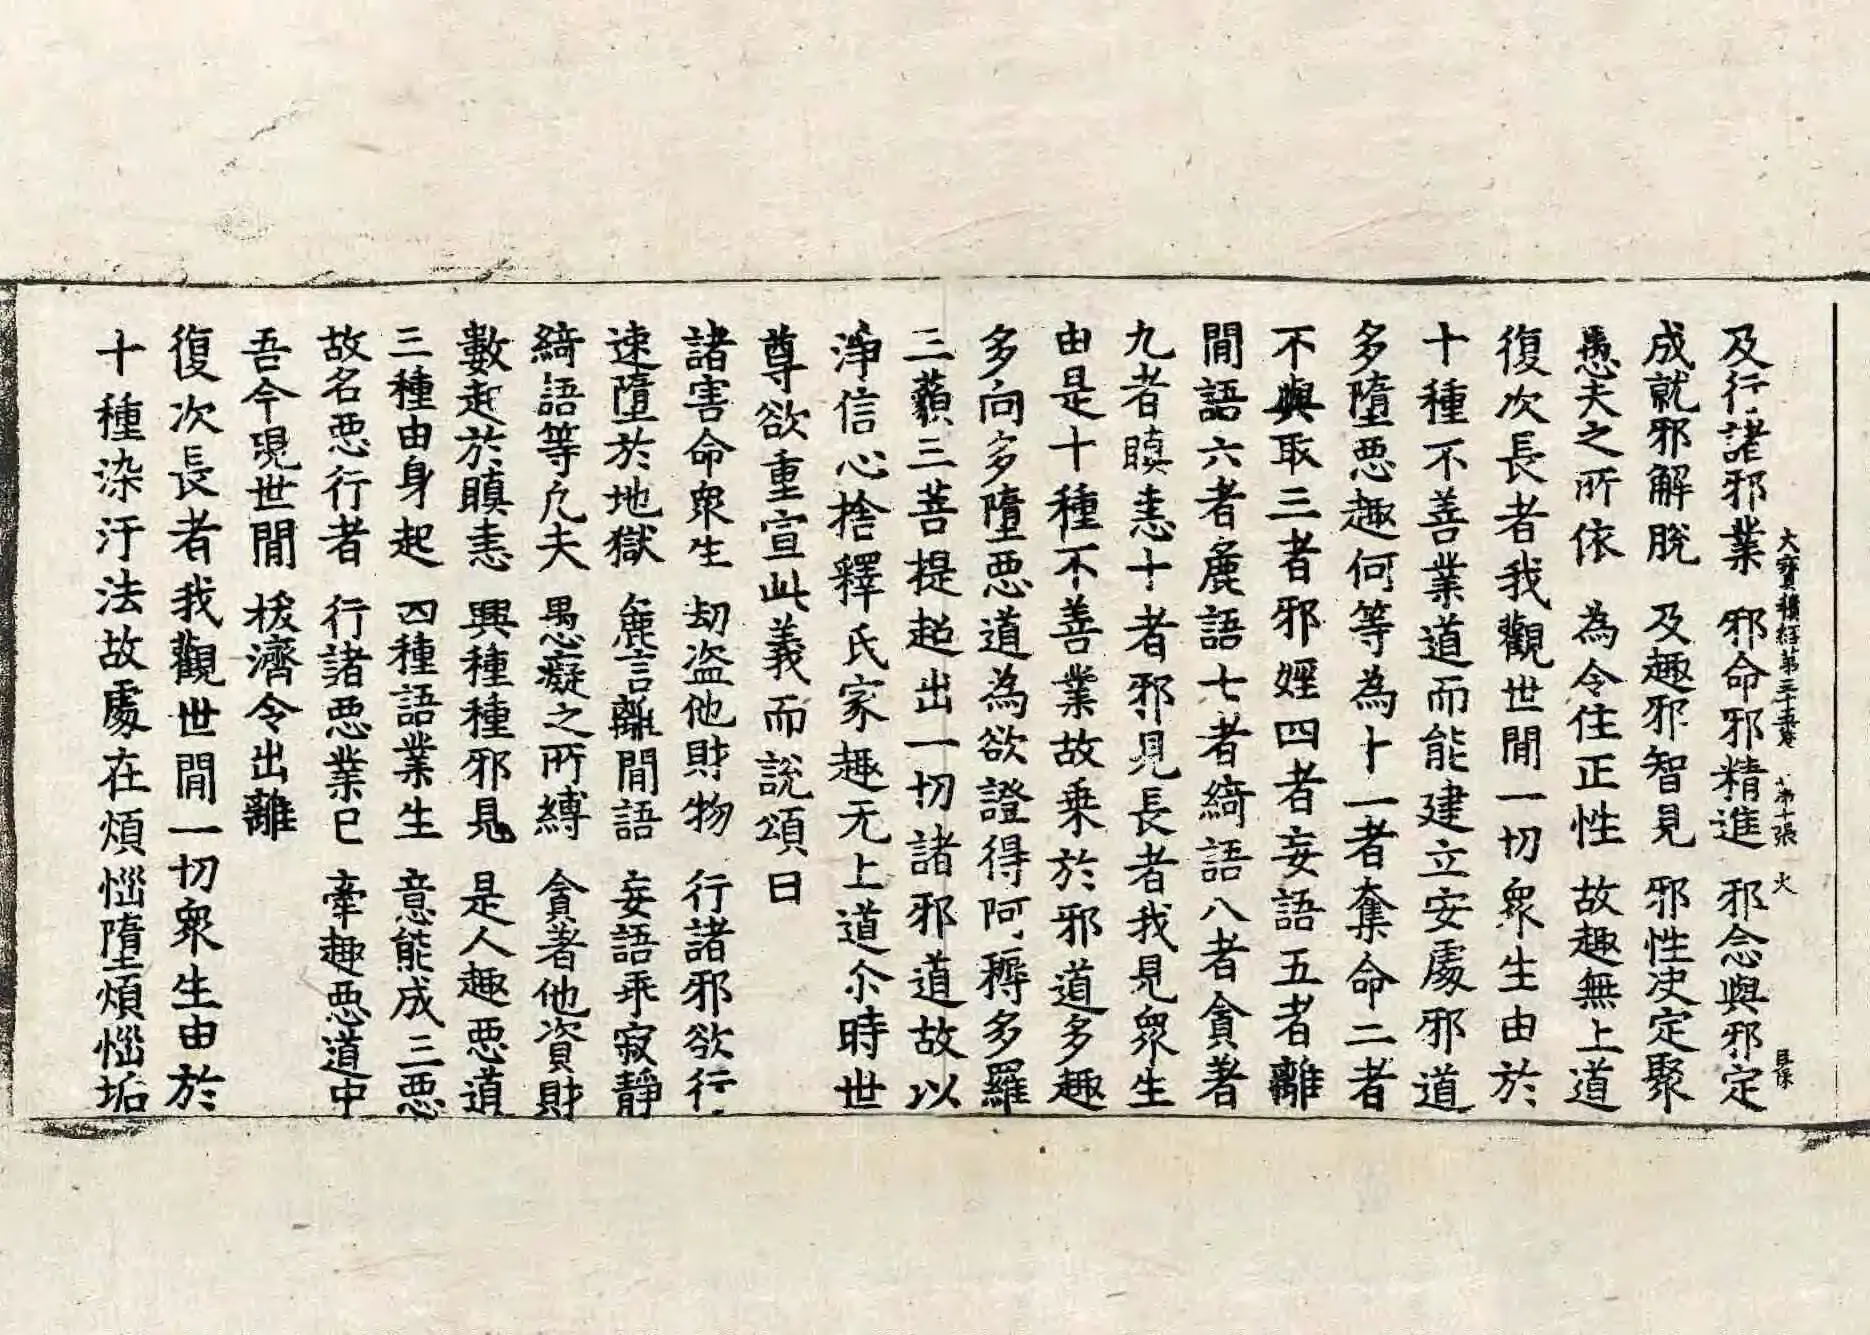 大寶積經第三十五卷 第十張 火
及行諸邪業 邪命邪精進 邪念與邪定
成就邪解脫 及趣邪智見 邪性決定聚
愚夫之所依 為令住正性 故趣無上道
復次長者我觀世間一切衆生由於
十種不善業道而能建立安處邪道
多墮惡趣何等為十一者奪命二者
不與取三者邪婬四者妄語五者離
間語六者麁語七者綺語八者貪著
九者瞋恚十者邪見長者我見衆生
由是十種不善業故乗於邪道多趣
多向多墮惡道為欲證得阿耨多羅
三藐三菩提超出一切諸邪道故以
淨信心捨釋氏家趣无上道尒時世
尊欲重宣此義而說頌曰
諸害命衆生 劫盗他財物 行諸邪欲行
速墮於地獄 麁言離間語 妄語乖寂靜
綺語等凢夫 愚癡之所縛 貪著他資財
數起於瞋恚 興種種邪見 是人趣惡道
三種由身起 四種語業生 意能成三惡
故名惡行者 行諸惡業已 牽趣惡道中
吾今現世間 拔濟令出離
復次長者我觀世間一切衆生由於
十種染汙法故處在煩惱墮煩惱垢